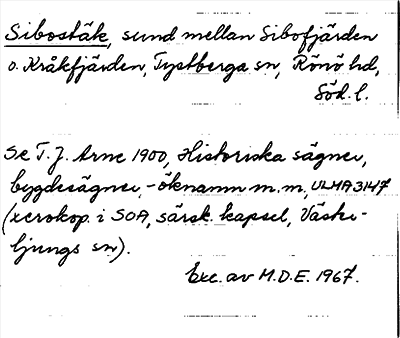 Sibostäk, sund mellan Sibofjärden
o. Kråkfjärden, Tystberga sn, Rönö hd,
Söd. l.
Se T. J. Arne 1900, Historiska sägner,
bygdesägner, - öknamn m.m, ULMA 3147
(xerokop. i SOA, särsk. kapsel, Väster-
ljungs sn).
Exc. av M.D.E. 1967.